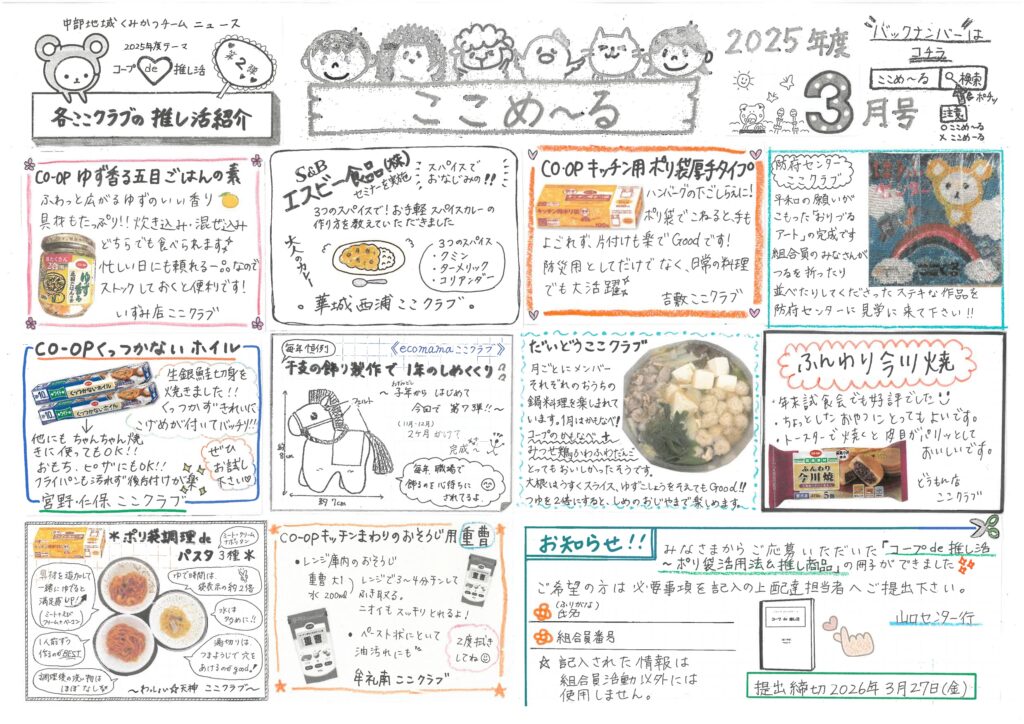 中部地域くみかつチーム ニュース
2025年度テーマ
コープ de 推し活
第2弾
各ここクラブの推し活紹介
ここめ〜る
2025年度
3月号
バックナンバーは
コチラ
ここめ〜る 検索
ポチッ
注意
○ここめ〜る
×ここめーる
CO-OP ゆず香る五目ごはんの素
ふわっと広がるゆずのいい香り
具材もたっぷり!! 炊き込み・混ぜ込み
どちらでも食べられます。
忙しい日にも頼れる一品なので
ストックしておくと便利です!
いずみ店ここクラブ
S&B
エスビー食品(株)
セミナーを実施
スパイスで
おなじみの!!
3つのスパイスで!お手軽スパイスカレーの
作り方を教えていただきました
大人のカレー
3つのスパイス
・クミン
・ターメリック
・コリアンダー
華城西浦ここクラブ
CO-OP キッチン用ポリ袋厚手タイプ
ハンバーグの下ごしらえに!
ポリ袋でこねると、手も
よごれず、片付けも楽でGoodです!
防災用としてだけでなく、日常の料理
でも大活躍
吉敷ここクラブ
防府センター
ここクラブ
平和の願いが
こもった「おりづる
アート」の完成です
組合員のみなさんが
つるを折ったり
並べたりしてくださったステキな作品を
防府センターに見学に来て下さい!!
CO-OPくっつかないホイル
生銀鮭切身を
焼きました!!
くっつかずきれいに
こげめが付いてバッチリ!!
他にもちゃんちゃん焼
きに使ってもOK!!
おもち、ピザにもOK!!
フライパンも汚れず後片付けが楽
ぜひ
お試し
下さい
宮野・仁保ここクラブ
毎年恒例
《ecomamaここクラブ》
干支の飾り製作で1年のしめくくり
〜子年からはじめて
今回で第7弾!!〜
フェルト
(11月・12月)
2ヶ月かけて
完成〜
毎年職場で
飾るのを心待ちに
されてるよ。
約7cm
だいどうここクラブ
月ごとにメンバー
それぞれのおうちの
鍋料理を楽しまれて
います。1月はかもなべ!
コープのかもなべ+
みつせ鶏ふわふわだんご
とってもおいしかったそうです。
大根はうすくスライス、ゆずこしょうをそえてもGood!!
つゆを2倍にすると、しめのおじやまで楽しめます。
ふんわり今川焼
・年末試食会でも好評でした
・ちょっとしたおやつにとってもよいです。
トースターで焼くと皮目がパリッとして
おいしいです。
ふんわり
今川焼
5個
どうもんな
ここクラブ
*ポリ袋調理de
パスタ3種*
ミートソース
カルボナーラ
ナポリタン
具材を追加して
一緒にゆでると
満足度UP!
ゆで時間は
袋表示の約2倍
水は
多めに!!
1人前ずつ
作るのがBEST
湯切りは
つまようじで穴を
あけるのがgood!
調理後の洗い物は
ほぼなし
〜わっしょい☆天神 ここクラブ〜
CO-OPキッチンまわりのおそうじ用 重曹
・レンジ庫内のおそうじ
重曹 大1
水 200ml
レンジで3〜4分チンして
ふき取る。
ニオイもスッキリとれるよ!
・ペースト状にといて
油汚れにも
2度拭き
してね
牟礼南ここクラブ
お知らせ!!
みなさまからご応募いただいた「コープde推し活
〜ポリ袋活用法&推し商品」の冊子ができました
ご希望の方は必要事項を記入の上配達担当者へご提出下さい。
(ふりがな)
氏名
組合員番号
コープde推し活
山口センター行
☆記入された情報は
組合員活動以外には
使用しません。
提出締切 2026年3月27日(金)